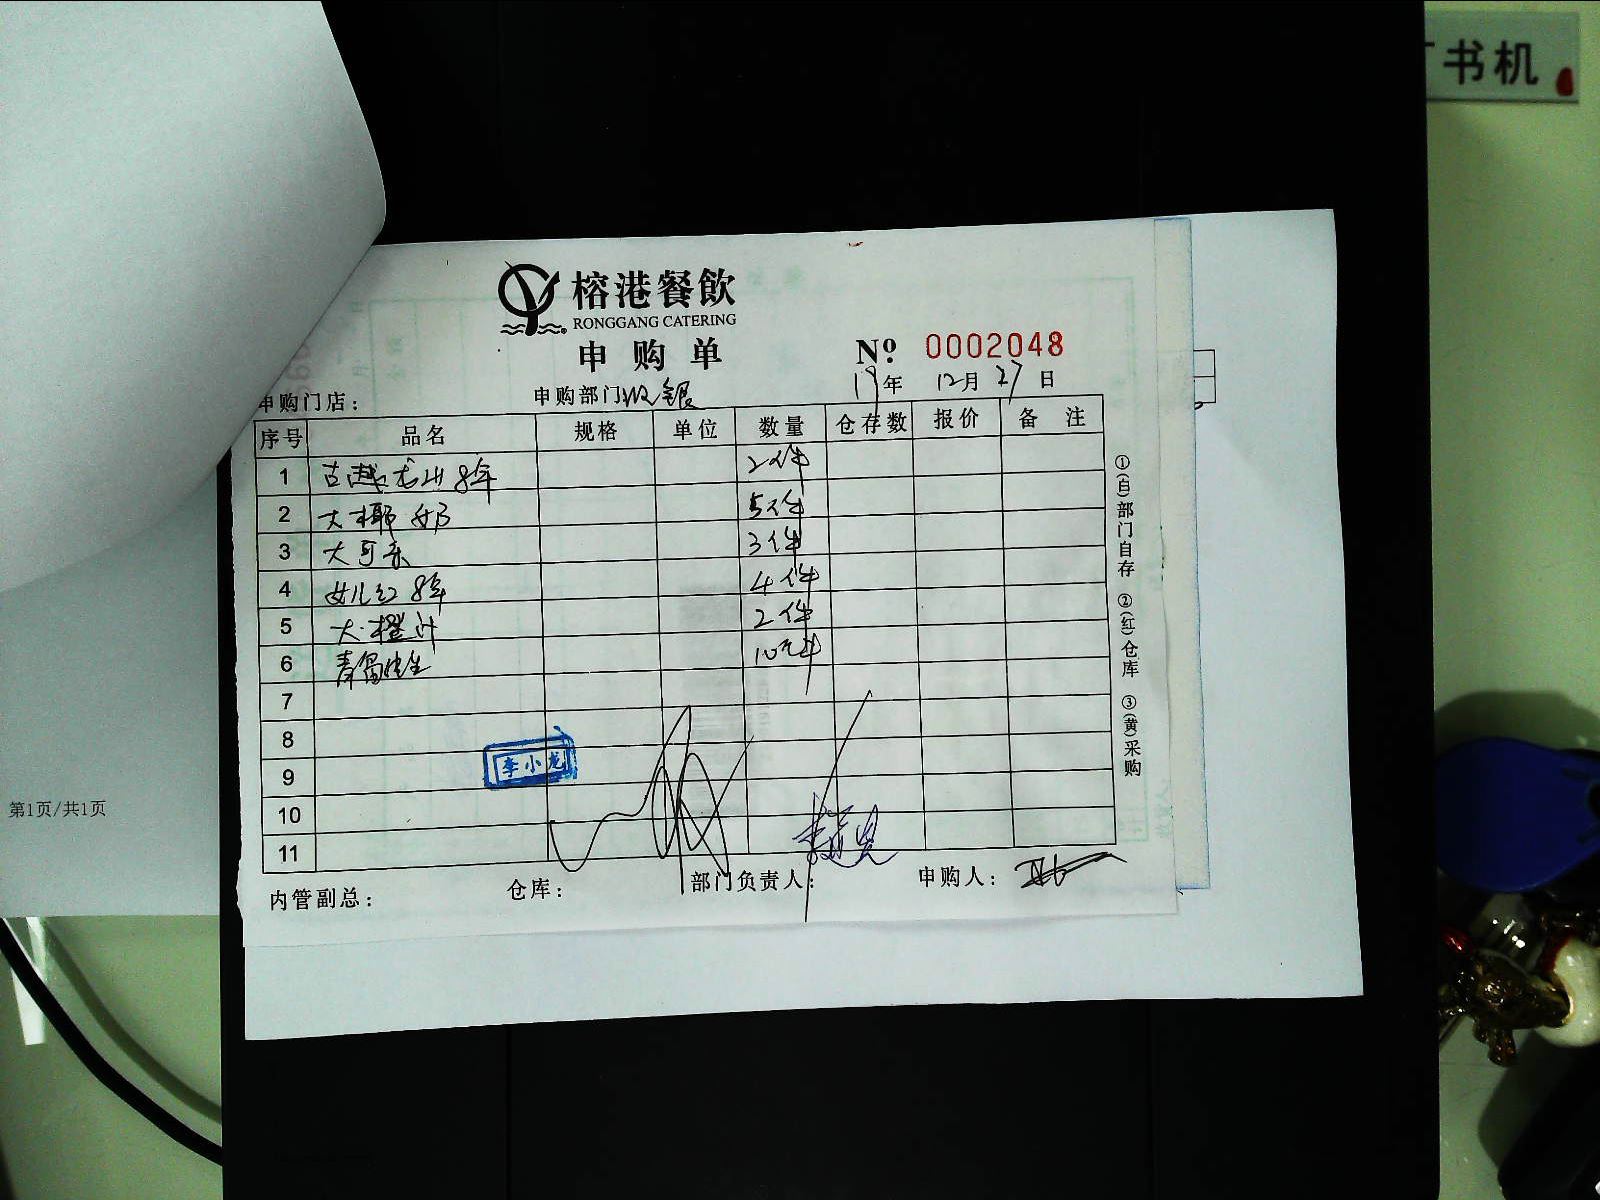 书机
榕港餐飲
RONGGANG CATERING
申购单
Nº: 0002048
申购门店:
申购部门 收银
19年 12月 27日
序号 品名 规格 单位 数量 仓存数 报价 备注
1 古越龙山8年 2件
2 大椰奶 5件
3 大可乐 3件
4 女儿红8年 4件
5 大橙汁 2件
6 青岛纯生 10件
7
8
9
10
11
李小龙
内管副总:
仓库:
部门负责人:
申购人:
①(白)部门自存 ②(红)仓库 ③(黄)采购
第1页/共1页